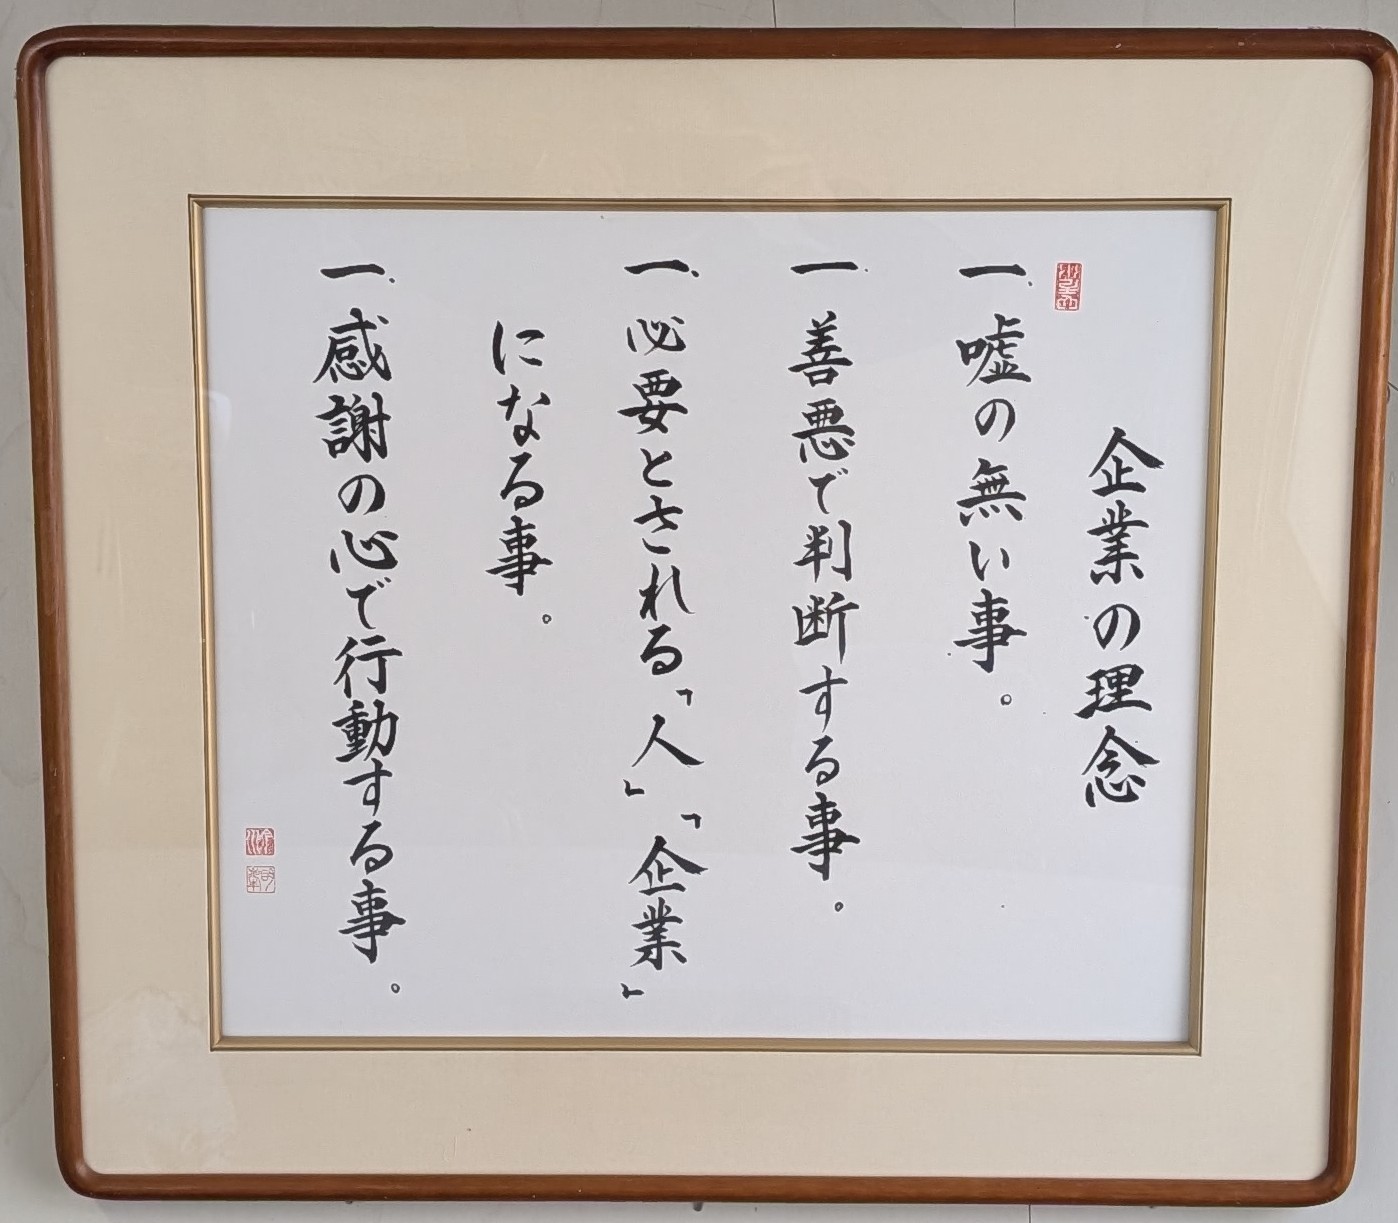 企業の理念
一、嘘の無い事。
一、善悪で判断する事。
一、必要とされる「人」「企業」
になる事。
一、感謝の心で行動する事。